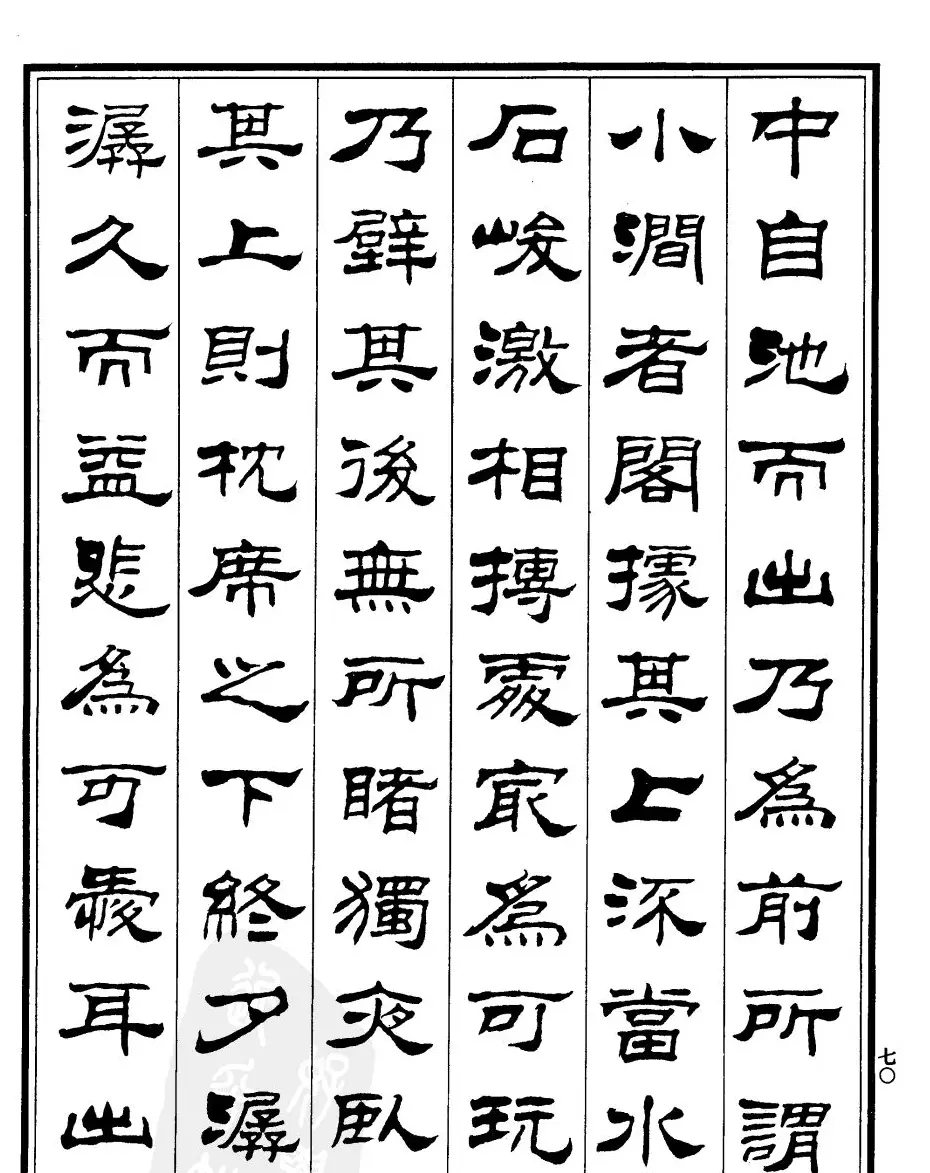 中自池而出乃為前所謂
小澗者閣據其上流當水
石峻激相搏處最為可玩
乃壁其後無所睹獨夜臥
其上則枕席之下終夕潺
潺久而益悲為可愛耳出
七〇